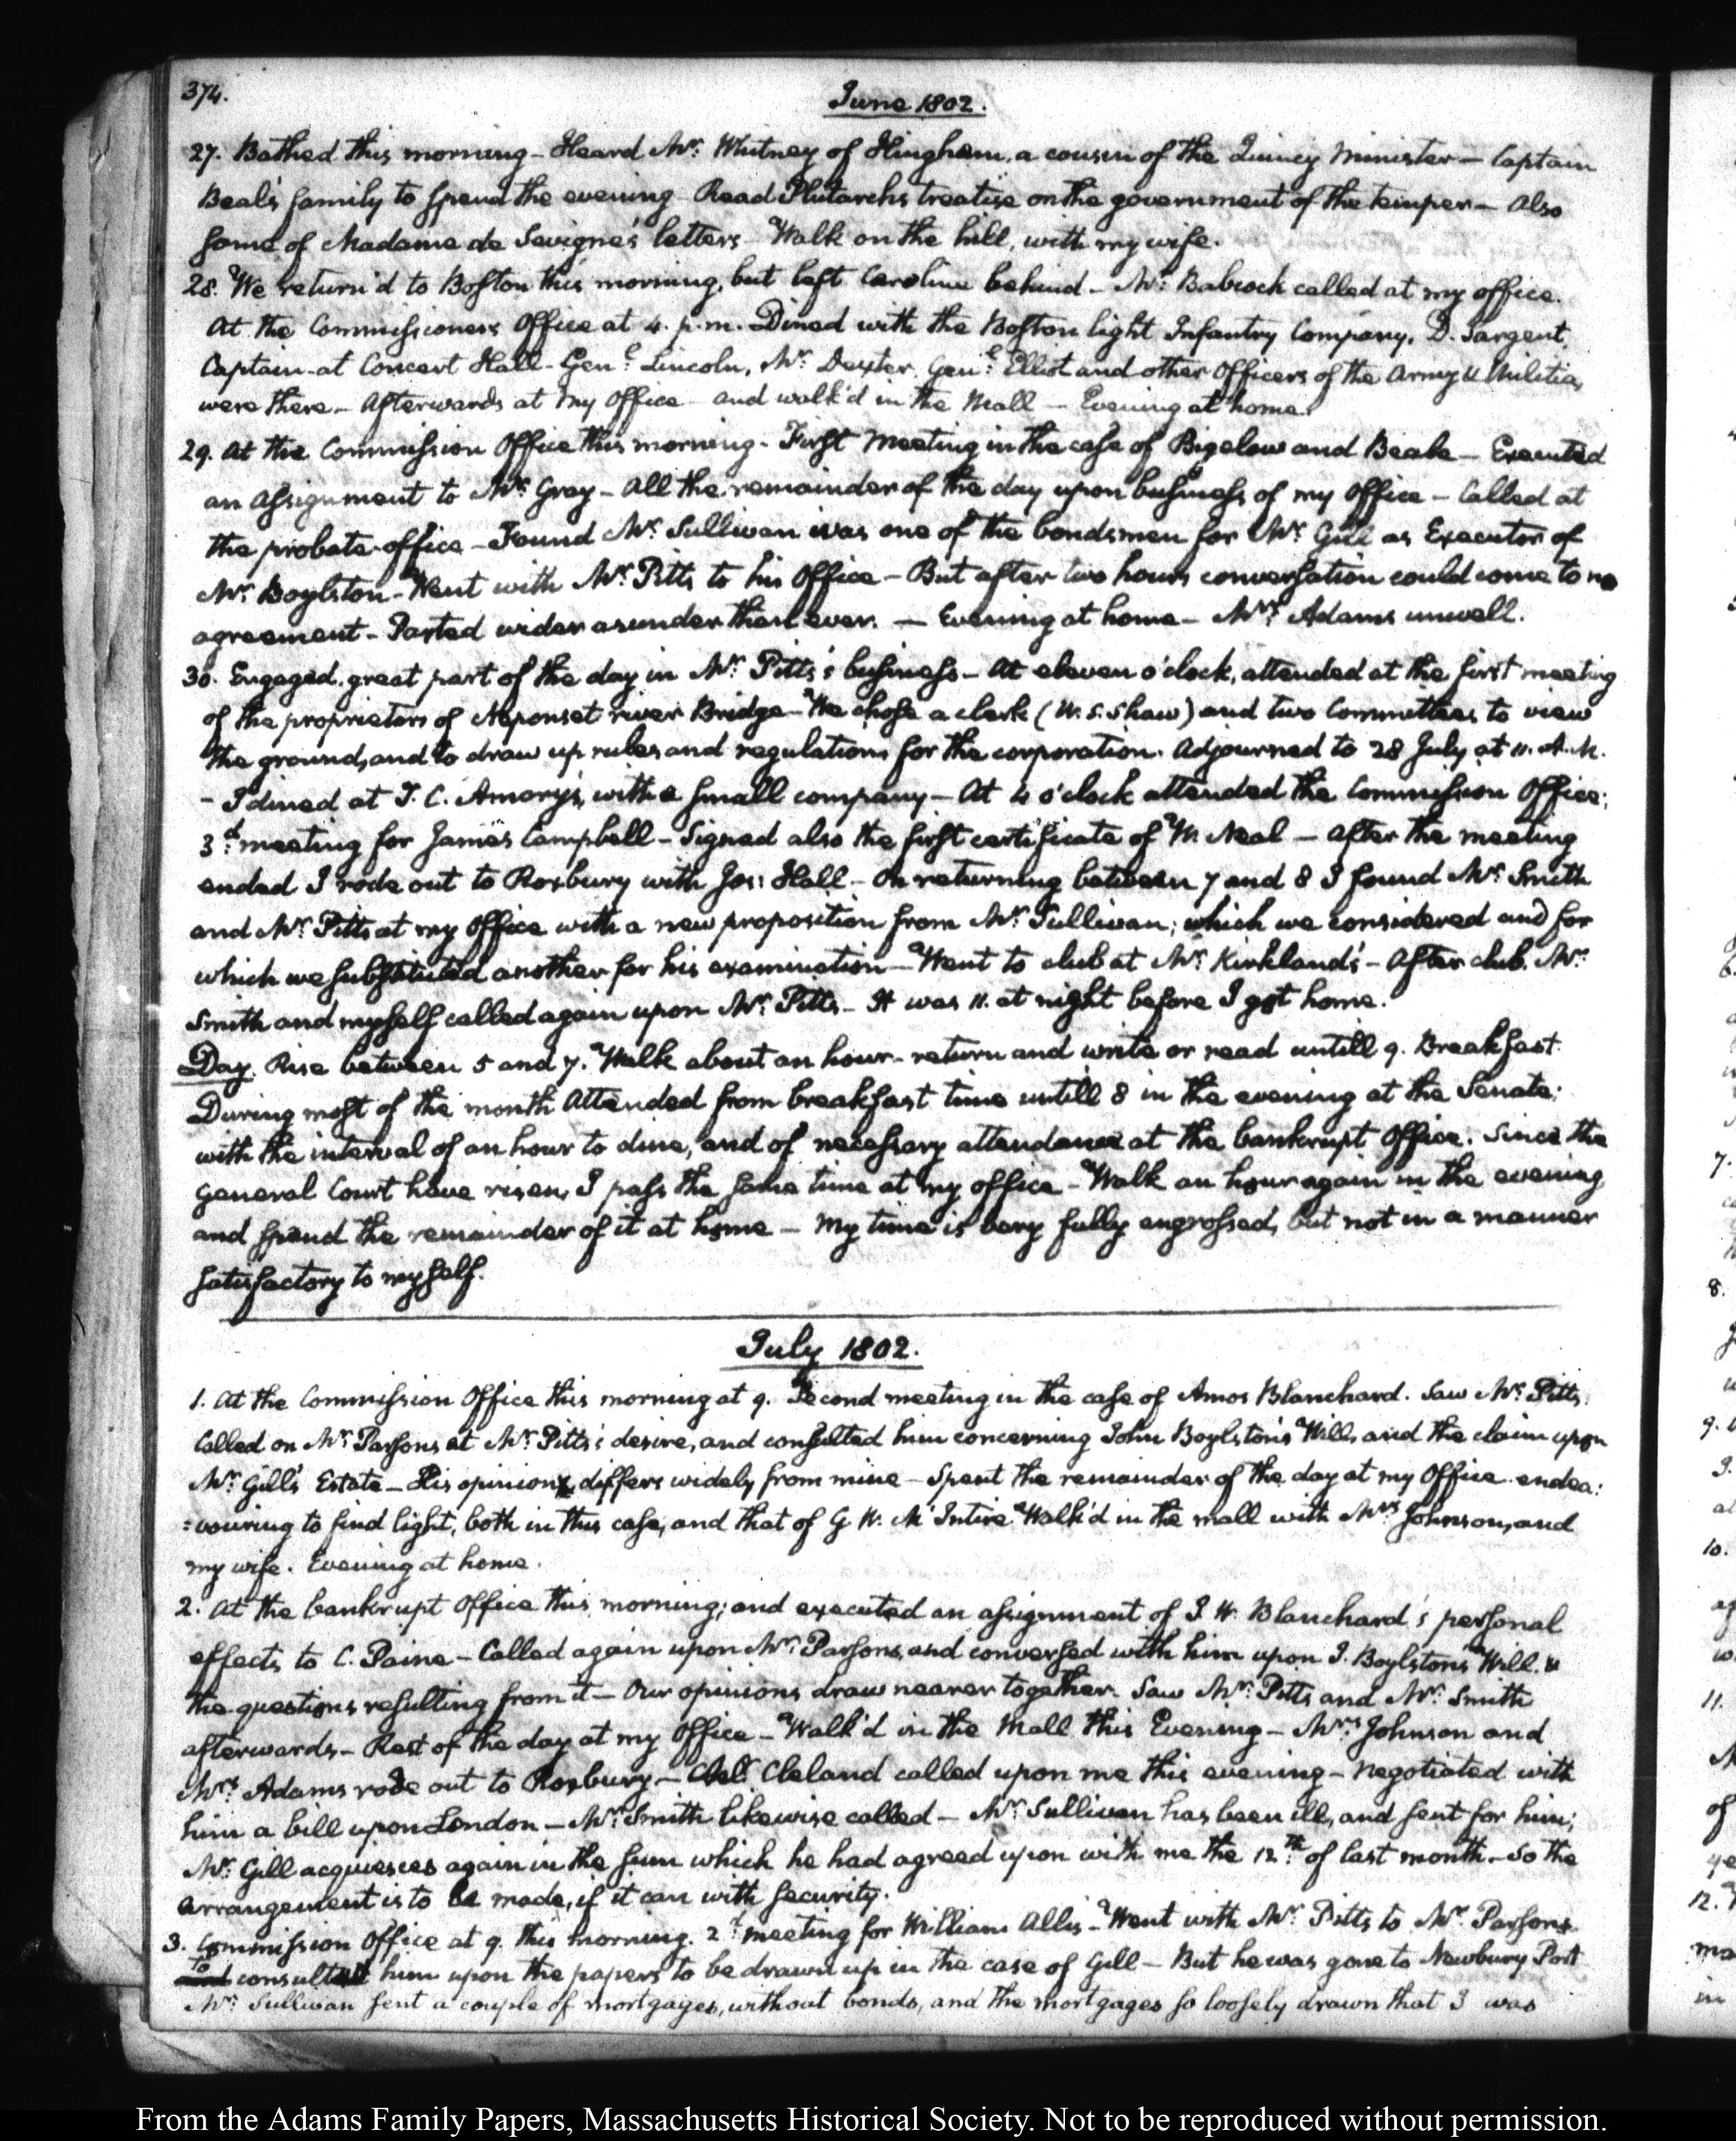 374.
June 1802.
27. Bathed this morning - Heard Mr. Whitney of Hingham, a cousin of the Quincy Minister - Captain
Beal's family to spend the evening - Read Plutarchs treatise on the government of the temper - Also
some of Madame de Sevigné's letters - Walk on the hill, with my wife.
28. We return'd to Boston this morning, but left Caroline behind - Mr. Babcock called at my office.
At the Commissioners Office at 4. p.m. Dined with the Boston light Infantry Company, D. Sargent,
Captain - at Concert Hall - Genl. Lincoln, Mr. Dexter, Genl. Elliot and other Officers of the Army & Militia,
were there - Afterwards at my Office - and walk'd in the Mall - Evening at home.
29. At the Commission Office this morning - First Meeting in the case of Bigelow and Beale - Executed
an assignment to Mr. Gray - All the remainder of the day upon business of my Office - Called at
the probate-office - Found Mr. Sullivan was one of the bondsmen for Mr. Gill as Executor of
Mr. Boylston - Went with Mr. Pitts to his Office - But after two hours conversation could come to no
agreement - Parted wider asunder than ever. - Evening at home - Mrs. Adams unwell.
30. Engaged, great part of the day in Mr. Pitts's business - At eleven o'clock, attended at the first meeting
of the proprietors of Neponset river Bridge - We chose a clerk (W. S. Shaw) and two Committees to view
the ground, and to draw up rules and regulations for the corporation. Adjourned to 28 July at 11. A.M.
- I dined at T. C. Amory's, with a small company - At 4 o'clock attended the Commission Office;
3d. meeting for James Campbell - Signed also the first certificate of W. Neal - After the meeting
ended I rode out to Roxbury with Jos: Hall - On returning between 7 and 8 I found Mr. Smith
and Mr. Pitts at my Office with a new proposition from Mr. Sullivan; which we considered and for
which we substituted another for his examination - Went to club at Mr. Kirkland's - After club, Mr.
Smith and myself called again upon Mr. Pitts - It was 11. at night before I got home.
Day. Rise between 5 and 7. Walk about an hour - return and write or read untill 9. Breakfast.
During most of the month Attended from breakfast time untill 8 in the evening at the Senate;
with the interval of an hour to dine, and of necessary attendance at the bankrupt Office. Since the
General Court have risen, I pass the same time at my office - Walk an hour again in the evening
and spend the remainder of it at home - My time is very fully engrossed, but not in a manner
satisfactory to myself.
July 1802.
1. At the Commission Office this morning at 9. Second meeting in the case of Amos Blanchard. Saw Mr. Pitts.
Called on Mr. Parsons at Mr. Pitts's desire, and consulted him concerning John Boylston's Will, and the claim upon
Mr. Gill's Estate - His opinion differs widely from mine - Spent the remainder of the day at my Office endea:
:vouring to find light, both in this case, and that of G. W. M'Intire. Walk'd in the mall with Mrs. Johnson, and
my wife. Evening at home.
2. At the bankrupt Office this morning; and executed an assignment of J. W. Blanchard's personal
effects to C. Paine - Called again upon Mr. Parsons, and conversed with him upon J. Boylston's Will. &
the questions resulting from it - Our opinions draw nearer together. Saw Mr. Pitts and Mr. Smith
afterwards - Rest of the day at my Office - Walk'd in the Mall this Evening - Mrs. Johnson and
Mrs. Adams rode out to Roxbury - Cleland called upon me this evening - negotiated with
him a bill upon London - Mr. Smith likewise called - Mr. Sullivan has been ill, and sent for him;
Mr. Gill acquiesces again in the sum which he had agreed upon with me the 12th. of last month - So the
arrangement is to be made, if it can with security.
3. Commission Office at 9. this morning. 2d. meeting for William Allis - Went with Mr. Pitts to Mr. Parsons
to consult him upon the papers to be drawn up in the case of Gill - But he was gone to Newbury Port
Mr. Sullivan sent a couple of mortgages, without bonds, and the mortgages so loosely drawn that I was
7.
8.
9.
10.
11.
12.
From the Adams Family Papers, Massachusetts Historical Society. Not to be reproduced without permission.